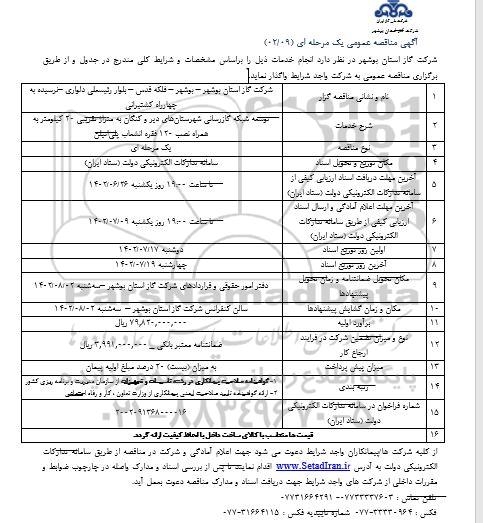 شرکت ملی گاز ایران
شرکت گاز استان بوشهر
آگهی مناقصه عمومی یک مرحله ای (۰۲/۰۹)
شرکت گاز استان بوشهر در نظر دارد انجام خدمات ذیل را براساس مشخصات و شرایط کلی مندرج در جدول و از طریق
برگزاری مناقصه عمومی به شرکت واجد شرایط واگذار نماید.
۱ نام و نشانی مناقصه گزار شرکت گاز استان بوشهر – بوشهر – فلکه قدس – بلوار رئیسعلی دلواری – نرسیده به
چهارراه کشتیرانی
۲ شرح خدمات توسعه شبکه گازرسانی شهرستان‌های دیر و کنگان به متراژ تقریبی ۲۰ کیلومتر به
همراه نصب ۱۲۰ فقره انشعاب پلی اتیلن
۳ نوع مناقصه یک مرحله ای
۴ مکان توزیع و تحویل اسناد سامانه تدارکات الکترونیکی دولت (ستاد ایران)
۵ آخرین مهلت دریافت اسناد ارزیابی کیفی از
سامانه تدارکات الکترونیکی دولت (ستاد ایران) تا ساعت ۱۹:۰۰ روز یکشنبه ۱۴۰۲/۰۶/۲۶
۶ آخرین مهلت اعلام آمادگی و ارسال اسناد
ارزیابی کیفی از طریق سامانه تدارکات
الکترونیکی دولت (ستاد ایران) تا ساعت ۱۹:۰۰ روز یکشنبه ۱۴۰۲/۰۷/۰۹
۷ اولین روز توزیع اسناد دوشنبه ۱۴۰۲/۰۷/۱۷
۸ آخرین روز توزیع اسناد چهارشنبه ۱۴۰۲/۰۷/۱۹
۹ مکان تحویل ضمانتنامه و زمان تحویل
پیشنهادها دفتر امور حقوقی و قراردادهای شرکت گاز استان بوشهر – سه‌شنبه ۱۴۰۲/۰۸/۰۲
۱۰ مکان و زمان گشایش پیشنهادها سالن کنفرانس شرکت گاز استان بوشهر – سه‌شنبه ۱۴۰۲/۰۸/۰۲
۱۱ برآورد اولیه ۷۹,۸۲۰,۰۰۰,۰۰۰ ریال
۱۲ نوع و میزان تضمین شرکت در فرایند
ارجاع کار ضمانتنامه معتبر بانکی – ۳,۹۹۱,۰۰۰,۰۰۰ ریال
۱۳ میزان پیش پرداخت به میزان (بیست) ۲۰ درصد مبلغ اولیه پیمان
۱۴ رتبه بندی ۱- گواهینامه صلاحیت پیمانکاری در رشته تاسیسات و تجهیزات از سازمان مدیریت و برنامه ریزی کشور
۲- ارائه گواهینامه تایید صلاحیت ایمنی پیمانکاری از وزارت تعاون، کار و رفاه اجتماعی
۱۵ شماره فراخوان در سامانه تدارکات الکترونیکی
دولت (ستاد ایران) ۲۰۰۲۰۹۱۳۶۸۰۰۰۰۱۶
۱۶ قیمت ها متناسب با کالای ساخت داخل با لحاظ کیفیت ارائه گردد.
از کلیه شرکت ها/پیمانکاران واجد شرایط دعوت می شود جهت اعلام آمادگی و شرکت در مناقصه از طریق سامانه تدارکات
الکترونیکی دولت به آدرس www.SetadIran.ir اقدام نمایند تا پس از بررسی اسناد و مدارک واصله در چارچوب ضوابط و
مقررات داخلی از شرکت های واجد شرایط جهت دریافت اسناد و مدارک مناقصه دعوت بعمل آید.
تلفن تماس : ۰۷۷۳۳۳۳۷۶۰۳ – ۰۷۷۳۱۶۶۴۲۹۱
فکس : ۳۳۳۳۰۹۶۴-۰۷۷ شماره تاییدیه فکس : ۳۱۶۶۴۱۱۵-۰۷۷